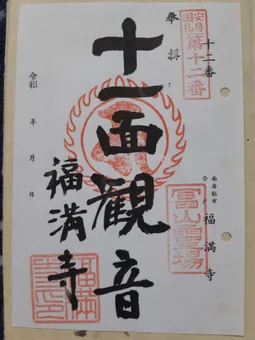 安房
国札
第十二番
十二番
奉拝
十一面観音
令和 年 月 日
福満寺
南房総市
福満寺
富山霊場